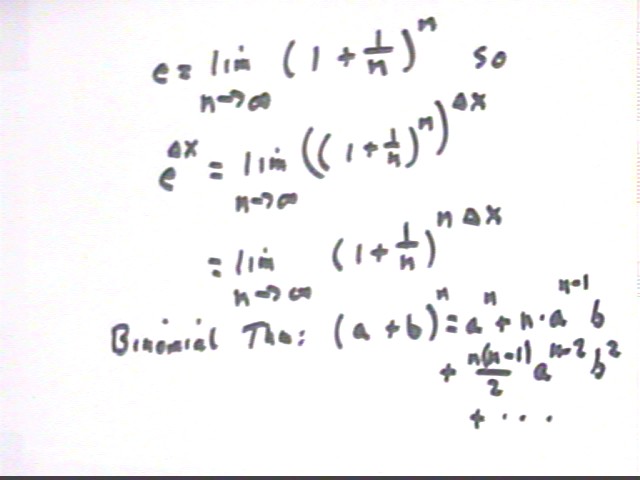 e = lim n→∞ (1 + 1/n)^n so
e^Δx = lim n→∞ ((1 + 1/n)^n)^Δx
= lim n→∞ (1 + 1/n)^n Δx
Binomial Thm: (a + b)^n = a^n + n·a^n-1 b
+ n(n-1)/2 a^n-2 b^2
+ ...